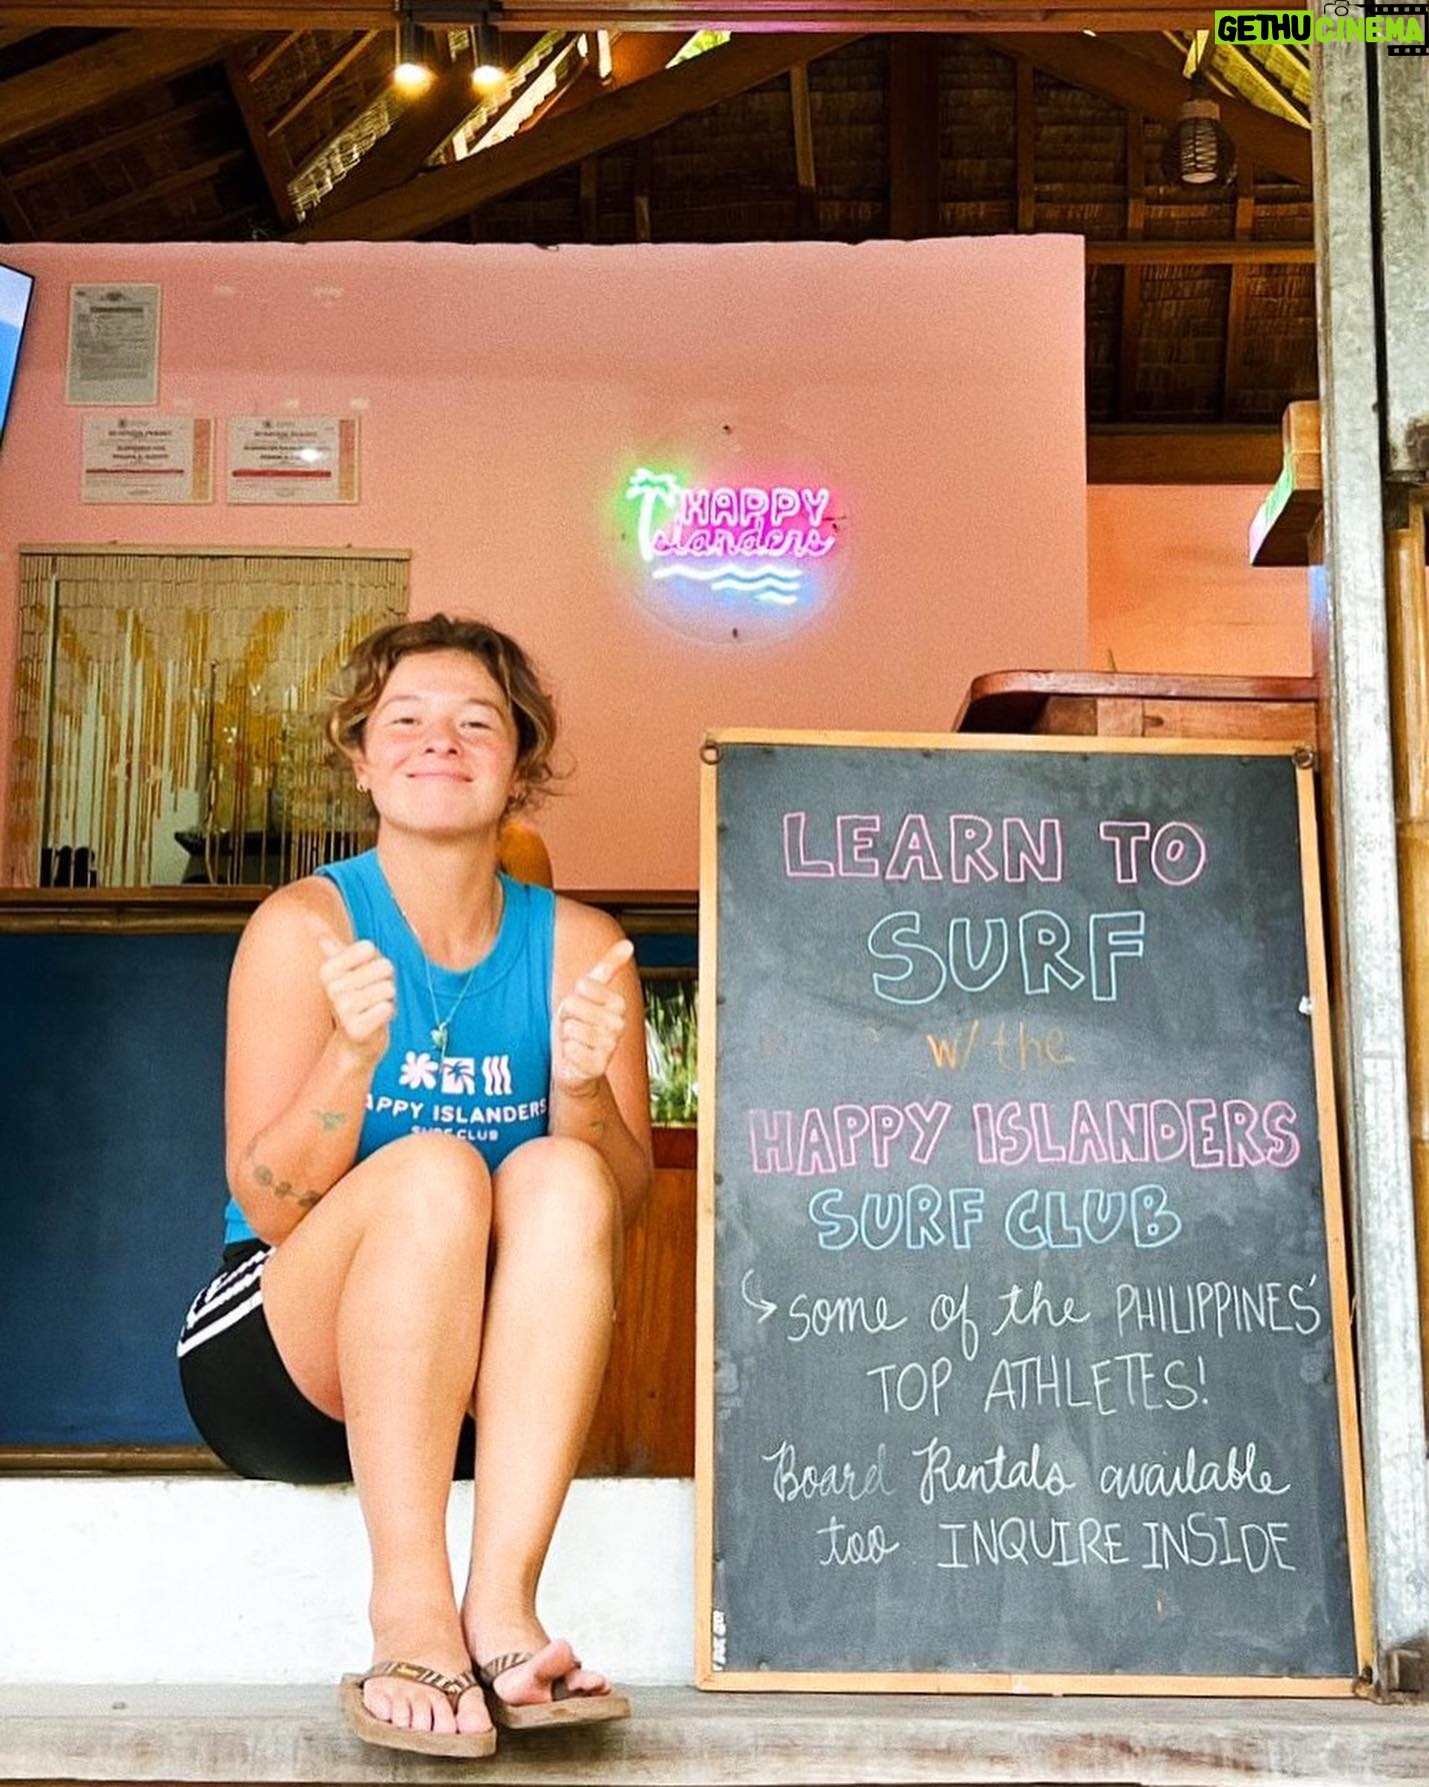 GETHU CINEMA
HAPPY
Islanders
LEARN TO
SURF
w/ the
HAPPY ISLANDERS
SURF CLUB
some of the PHILIPPINES'
TOP ATHLETES!
Board Rentals available
too INQUIRE INSIDE
APPY ISLANDERS
SURF CLUB